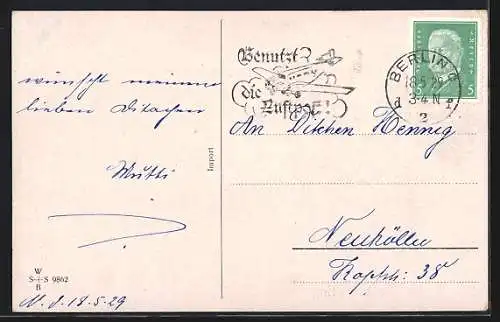 wünscht meinem
lieben Ditachen
Mutti
W
S+S 9862
B
N. d. 18.5.29
Import
Benutzt
die
Luftpost!
BERLIN
18.5.29
3-4 N
2
5
An Ditchen Hennig
Neukölln
Kopfstr. 38